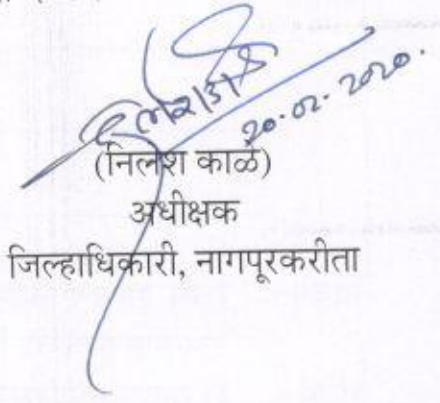 20.02.2020.
(निलेश काळे)
अधीक्षक
जिल्हाधिकारी, नागपूरकरीता